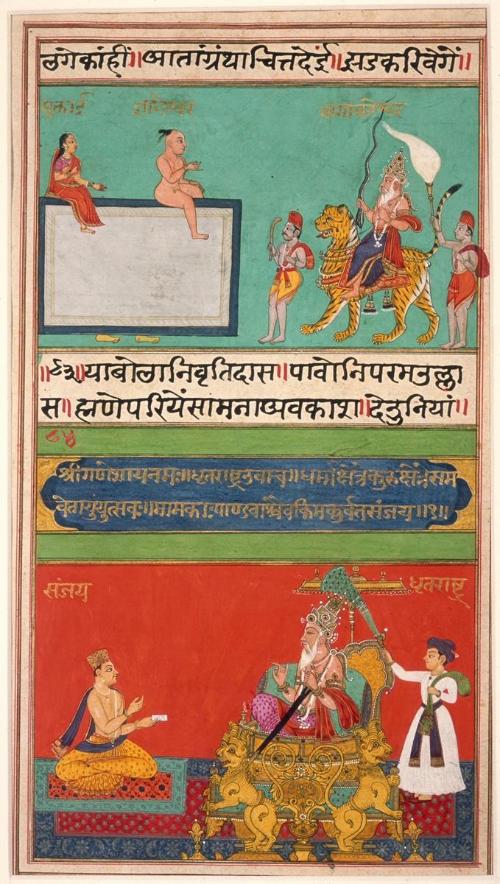 लगेकांहीं॥आतांग्रंथाचित्तदेईं॥झडकरिवेगें॥
मुक्ताई ज्ञानेश्वर
॥८३॥याबोलानिवृतिदास॥पावोनिपरमउल्हा
स॥ह्मणेपरियेंसामनाअवकाश॥देउनियां॥
८४
श्रीगणेशायनमः॥धृतराष्ट्रउवाच॥धर्मक्षेत्रेकुरुक्षेत्रेसम
वेतायुयुत्सवः॥मामकाःपाण्डवाश्चैवकिमकुर्वतसंजय॥१॥
संजय धृतराष्ट्र